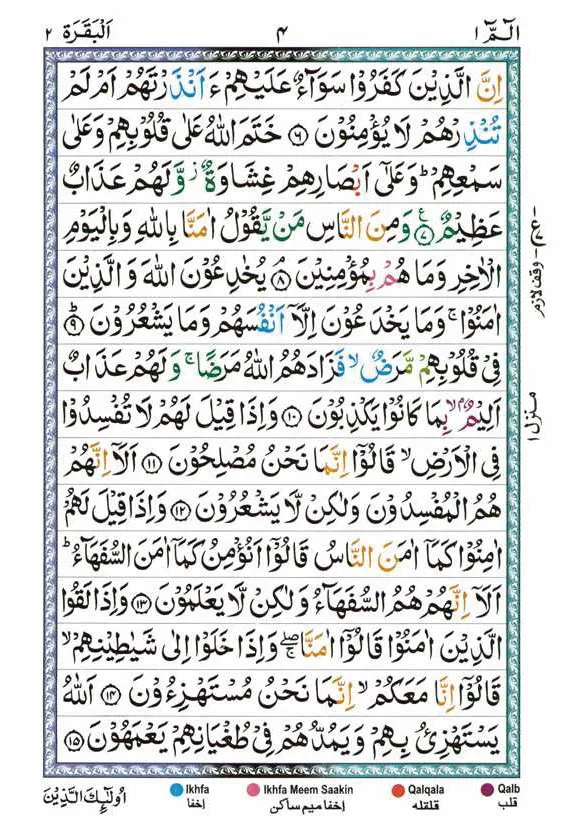 الٓمّٓ ١ ٤ اَلْبَقَرَة ٢
اِنَّ الَّذِيْنَ كَفَرُوْا سَوَآءٌ عَلَيْهِمْ ءَاَنْذَرْتَهُمْ اَمْ لَمْ
تُنْذِرْهُمْ لَا يُؤْمِنُوْنَ ۝۶ خَتَمَ اللّٰهُ عَلٰى قُلُوْبِهِمْ وَعَلٰى
سَمْعِهِمْ ؕ وَعَلٰٓى اَبْصَارِهِمْ غِشَاوَةٌ ؗ وَّلَهُمْ عَذَابٌ
عَظِيْمٌ ۝۷ ع وَمِنَ النَّاسِ مَنْ يَّقُوْلُ اٰمَنَّا بِاللّٰهِ وَبِالْيَوْمِ
الْاٰخِرِ وَمَا هُمْ بِمُؤْمِنِيْنَ ۘ ۝۸ يُخٰدِعُوْنَ اللّٰهَ وَالَّذِيْنَ
اٰمَنُوْا ۚ وَمَا يَخْدَعُوْنَ اِلَّاۤ اَنْفُسَهُمْ وَمَا يَشْعُرُوْنَ ؕ ۝۹
فِيْ قُلُوْبِهِمْ مَّرَضٌ ۙ فَزَادَهُمُ اللّٰهُ مَرَضًا ۚ وَلَهُمْ عَذَابٌ
اَلِيْمٌۢ ۙ بِمَا كَانُوْا يَكْذِبُوْنَ ۝۱۰ وَاِذَا قِيْلَ لَهُمْ لَا تُفْسِدُوْا
فِى الْاَرْضِ ۙ قَالُوْٓا اِنَّمَا نَحْنُ مُصْلِحُوْنَ ۝۱۱ اَلَاۤ اِنَّهُمْ
هُمُ الْمُفْسِدُوْنَ وَلٰكِنْ لَّا يَشْعُرُوْنَ ۝۱۲ وَاِذَا قِيْلَ لَهُمْ
اٰمِنُوْا كَمَاۤ اٰمَنَ النَّاسُ قَالُوْٓا اَنُؤْمِنُ كَمَاۤ اٰمَنَ السُّفَهَآءُ ؕ
اَلَاۤ اِنَّهُمْ هُمُ السُّفَهَآءُ وَلٰكِنْ لَّا يَعْلَمُوْنَ ۝۱۳ وَاِذَا لَقُوا
الَّذِيْنَ اٰمَنُوْا قَالُوْٓا اٰمَنَّا ۖۚ وَاِذَا خَلَوْا اِلٰى شَيٰطِيْنِهِمْ ۙ
قَالُوْٓا اِنَّا مَعَكُمْ ۙ اِنَّمَا نَحْنُ مُسْتَهْزِءُوْنَ ۝۱۴ اَللّٰهُ
يَسْتَهْزِئُ بِهِمْ وَيَمُدُّهُمْ فِيْ طُغْيَانِهِمْ يَعْمَهُوْنَ ۝۱۵
وقف لازم
منزل ١
Ikhfa Ikhfa Meem Saakin Qalqala Qalb
اُولٰٓئِكَ الَّذِيْنَ اخفا اخفا میم ساکن قلقله قلب